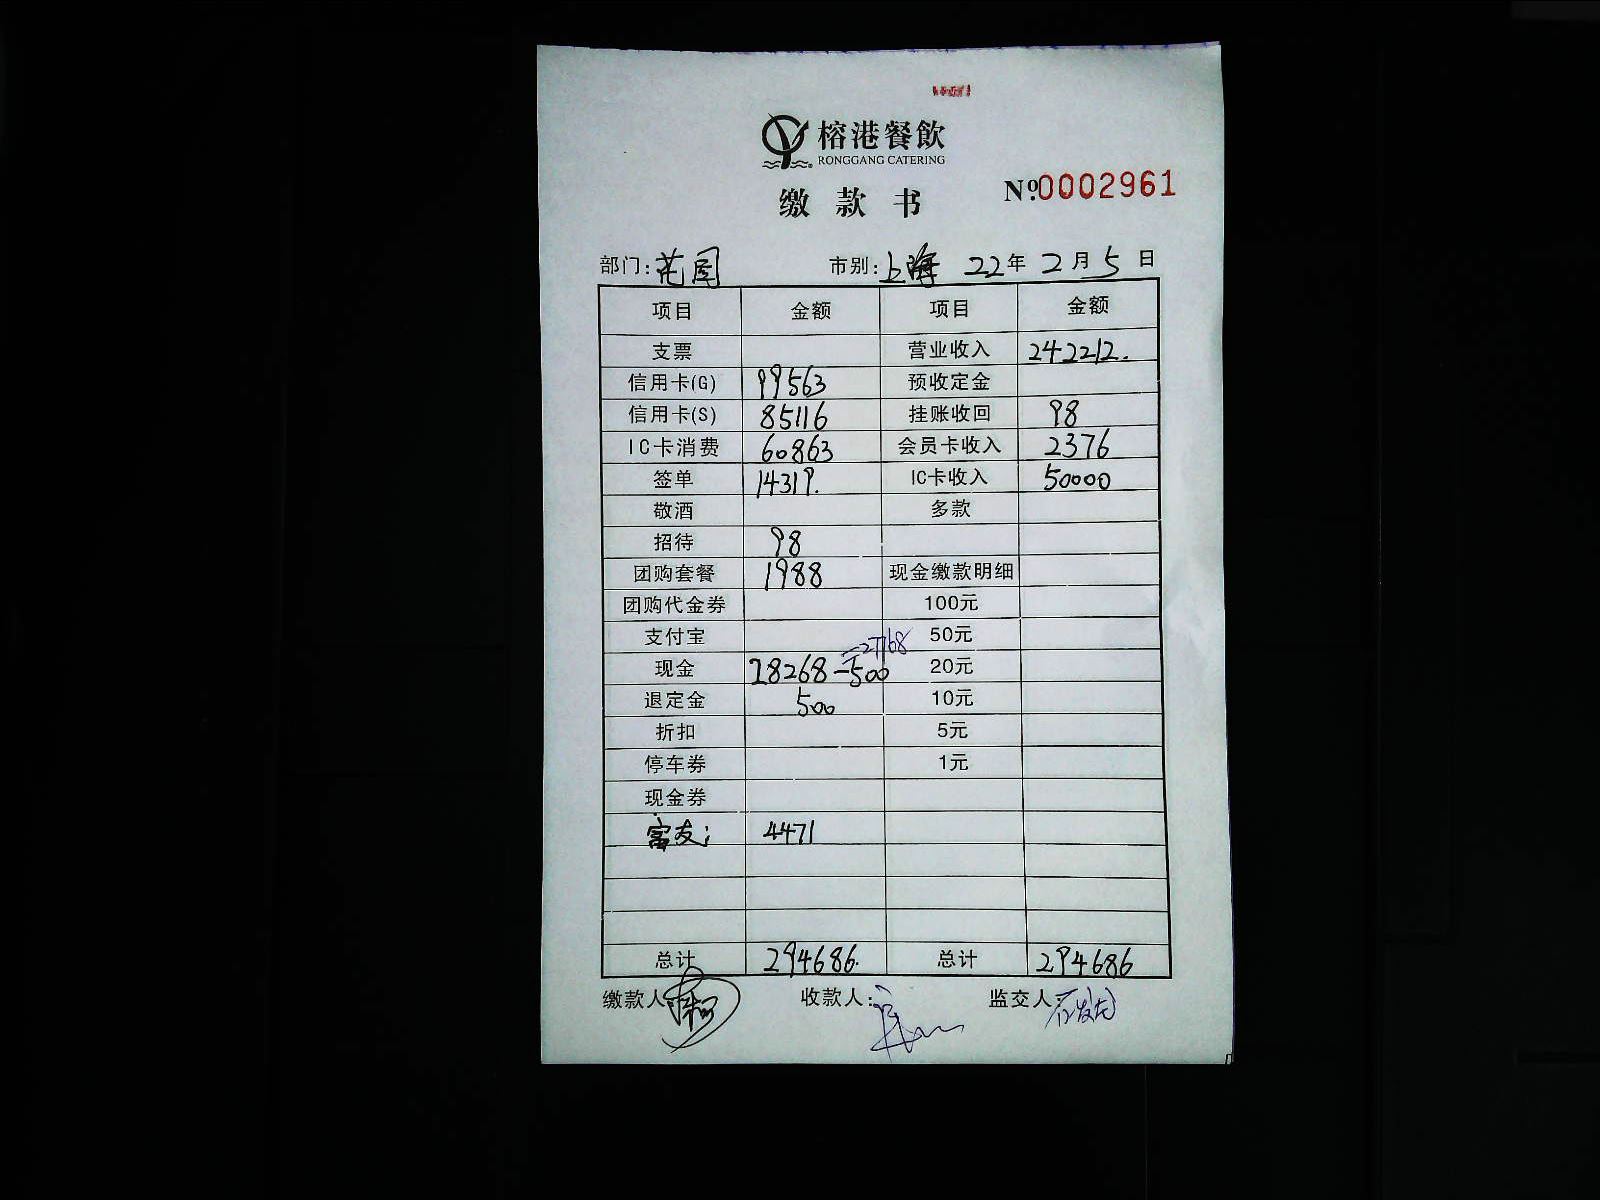 榕港餐飲
RONGGANG CATERING
缴款书
№0002961
部门:花园 市别:上海 22年2月5日
项目 金额 项目 金额
支票 营业收入 242212.
信用卡(G) 99563 预收定金
信用卡(S) 85116 挂账收回 98
IC卡消费 60863 会员卡收入 2376
签单 14319. IC卡收入 50000
敬酒 多款
招待 98
团购套餐 1988 现金缴款明细
团购代金券 100元
支付宝 50元
=27768
现金 28268-500 20元
退定金 500 10元
折扣 5元
停车券 1元
现金券
富友: 4471
总计 294686. 总计 294686
缴款人: 收款人: 监交人: